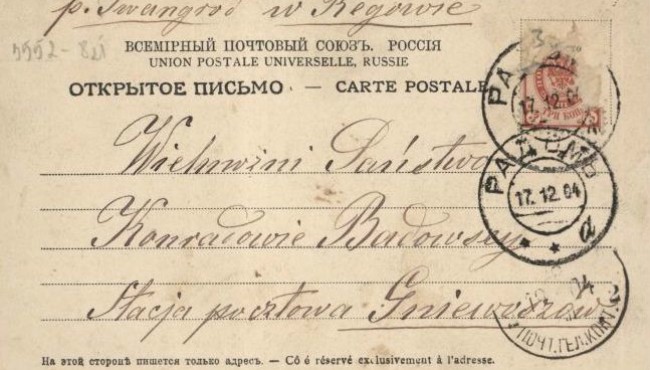 p. Iwangród w Regowie
5552-821
ВСЕМІРНЫЙ ПОЧТОВЫЙ СОЮЗЪ. РОССІЯ
UNION POSTALE UNIVERSELLE, RUSSIE
ОТКРЫТОЕ ПИСЬМО — CARTE POSTALE
3
РАДОМЪ
17.12.04
Wielmożni Państwo
РАДОМЪ
17.12.04
а
Konradowie Badowscy
04
Stacja pocztowa Gniewoszów
ПОЧТ.ТЕЛ.КОНТ.
На этой сторонѣ пишется только адресъ. — Cô é réservé exclusivement à l'adresse.